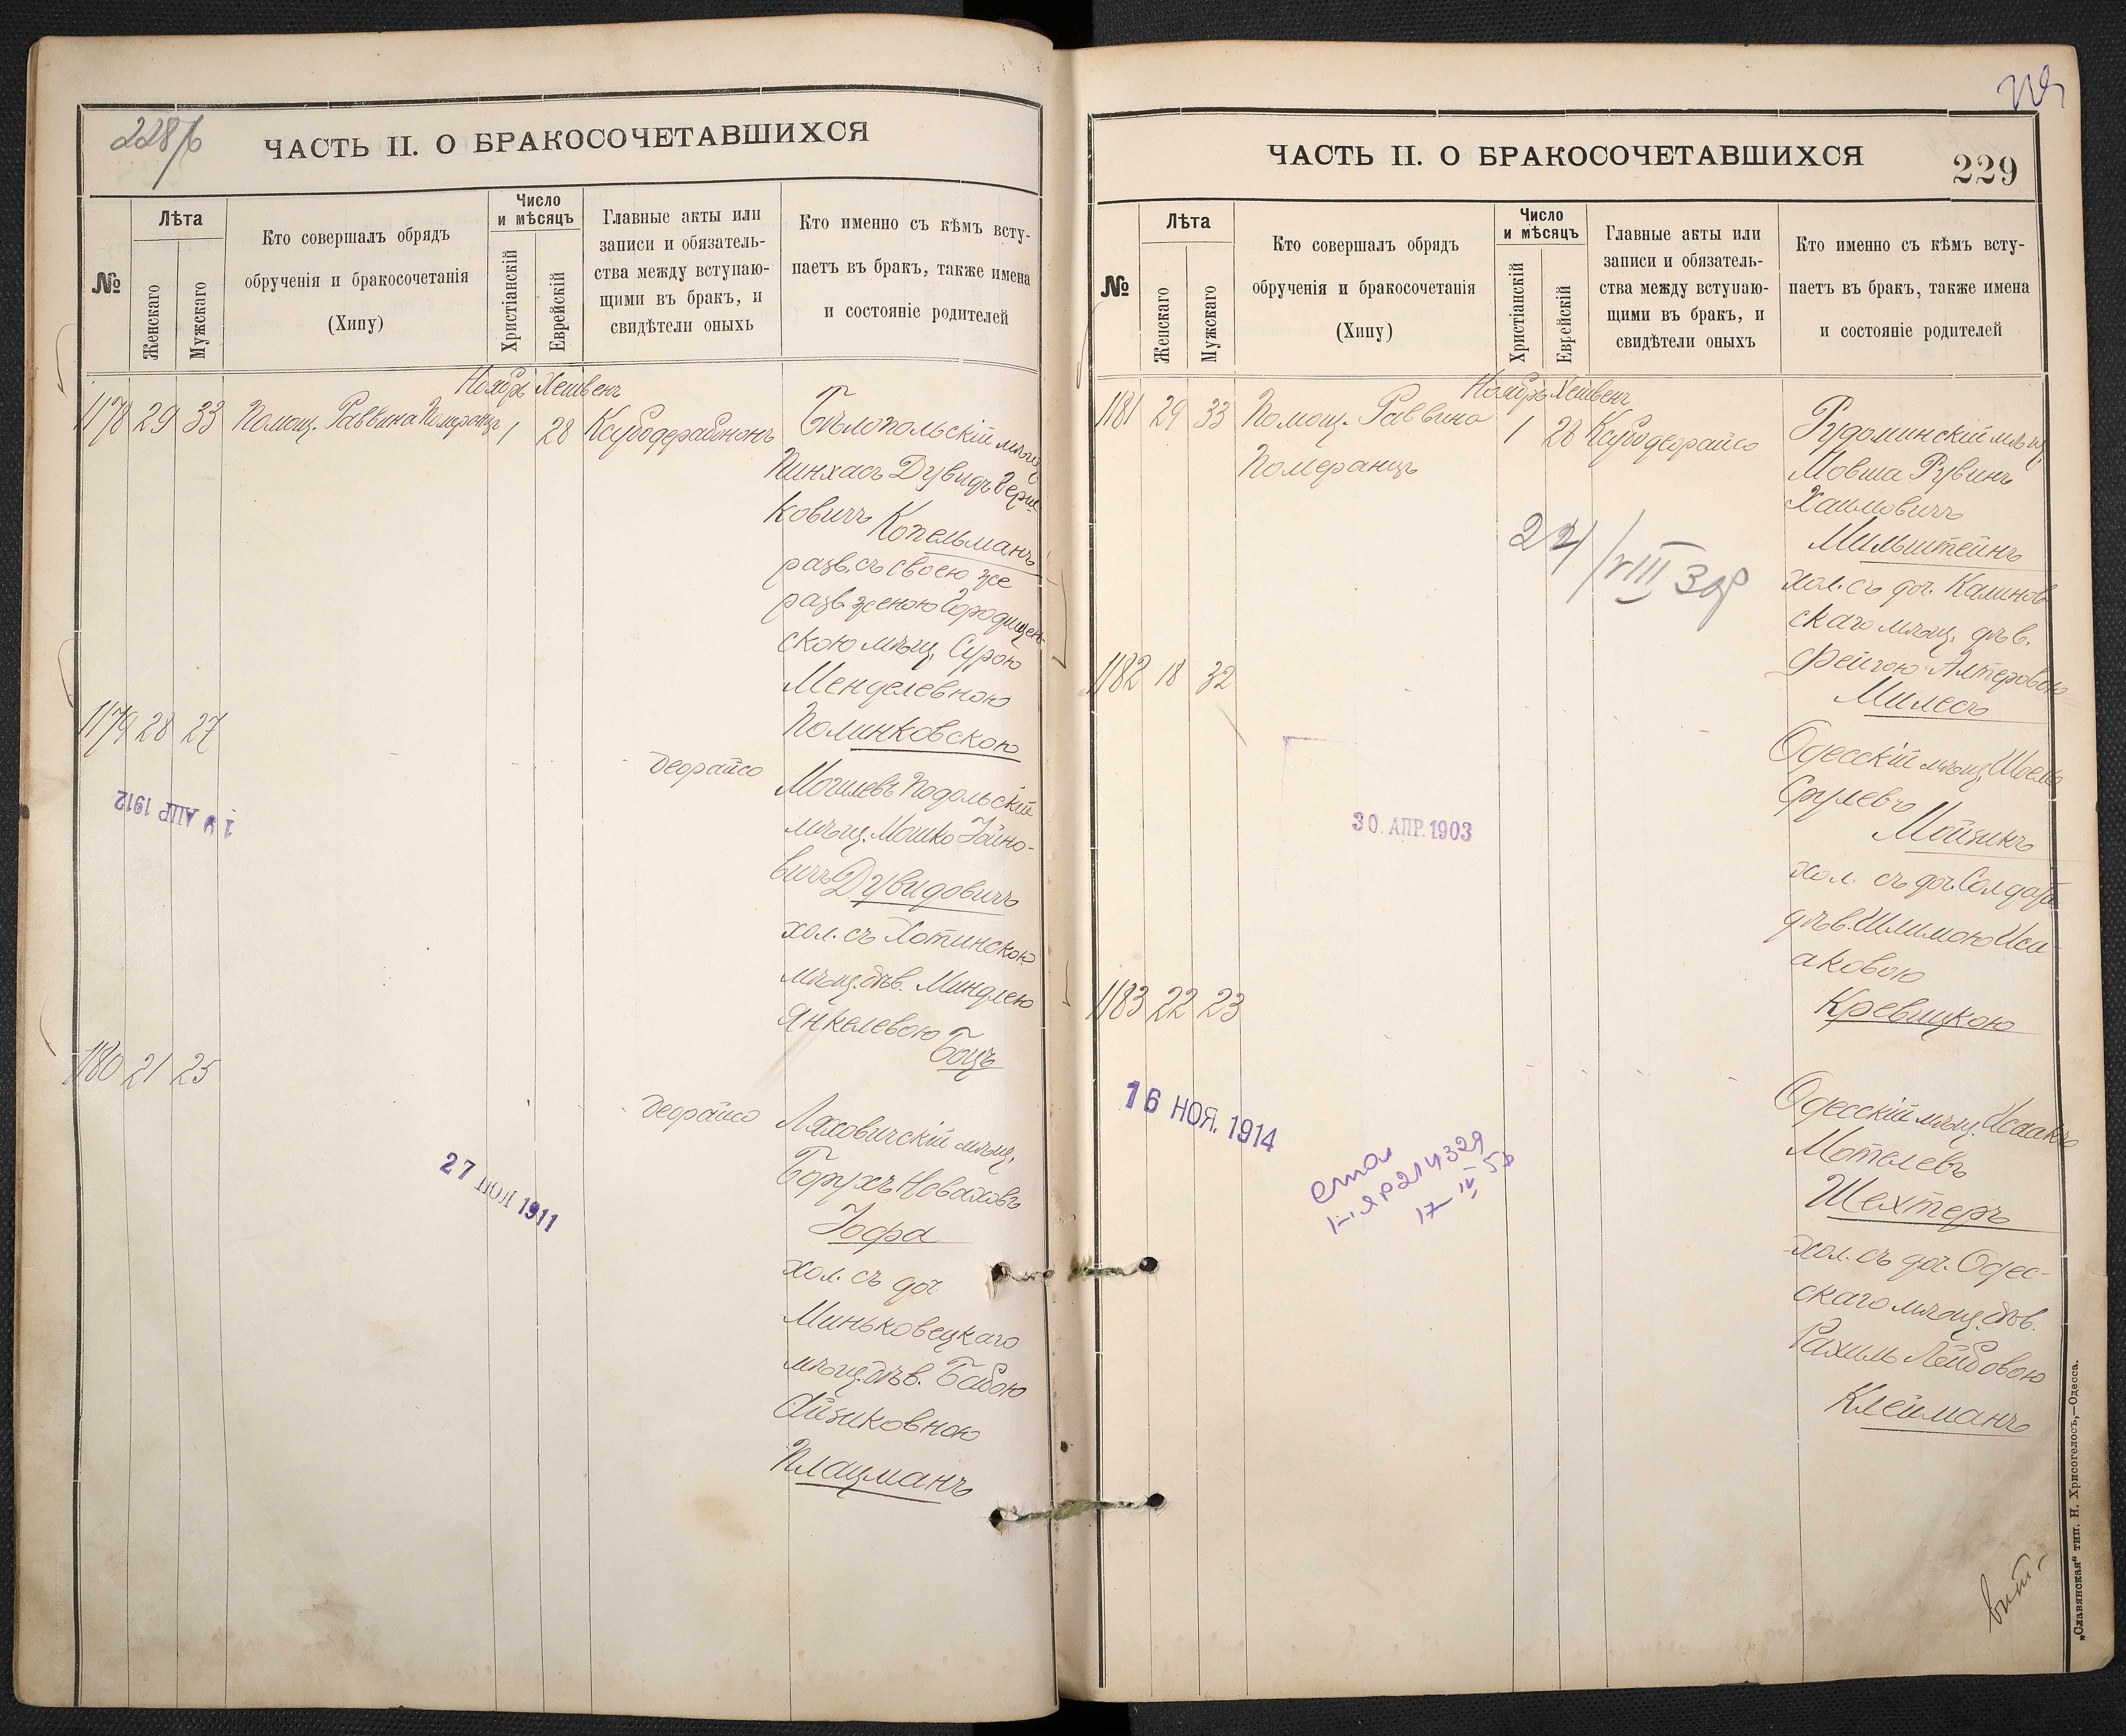 228/б
ЧАСТЬ II. О БРАКОСОЧЕТАВШИХСЯ
№
Лѣта
Женскаго
Мужскаго
Кто совершалъ обрядъ
обрученія и бракосочетанія
(Хипу)
Число
и мѣсяцъ
Христіанскій
Еврейскій
Главные акты или
записи и обязатель-
ства между вступаю-
щими въ бракъ, и
свидѣтели оныхъ
Кто именно съ кѣмъ всту-
паетъ въ бракъ, также имена
и состояніе родителей
Ноябрь Хешвенъ
1178 29 33 Помощ. Раввина Померанцъ 1 28
Бѣлопольскій мѣщ.
Пинхасъ Дувидъ Герш-
ковичъ Копельманъ
разв. съ своею же
разв. женою Городищен-
скою мѣщ. Сурою
Менделевною
Полинковскою
1179 28 27
деорайсо
Могилевъ Подольскій
мѣщ. Мошко Іойно-
вичъ Дувидовичъ
хол. съ Хотинскою
мѣщ. дѣв. Миндлею
Янкелевою Боцъ
19 АПР 1912
1180 21 25
деорайсо
Ляховичскій мѣщ.
Борухъ Новаховъ
Іофа
хол. съ доч.
Миньковецкаго
мѣщ. дѣв. Бабою
Айзиковною
Плацманъ
27 1911
ЧАСТЬ II. О БРАКОСОЧЕТАВШИХСЯ
229
№
Лѣта
Женскаго
Мужскаго
Кто совершалъ обрядъ
обрученія и бракосочетанія
(Хипу)
Число
и мѣсяцъ
Христіанскій
Еврейскій
Главные акты или
записи и обязатель-
ства между вступаю-
щими въ бракъ, и
свидѣтели оныхъ
Кто именно съ кѣмъ всту-
паетъ въ бракъ, также имена
и состояніе родителей
Ноябрь Хешвенъ
1181 29 33 Помощ. Раввина
Померанцъ
1 28 Ксубо деорайсо
Рудоминскій мѣщ.
Мовша Рувинъ
Хаимовичъ
Мильштейнъ
хол. съ доч. Калинов-
скаго мѣщ. дѣв.
Фейгою Алтеровою
Милесъ
1182 18 32
Одесскій мѣщ. Шоель
Срулевъ
Мойзикъ
хол. съ доч. Солдата
дѣв. Шлимою Иса-
аковою
Кревицкою
30. АПР. 1903
1183 22 23
Одесскій мѣщ. Исаакъ
Мотелевъ
Шехтеръ
хол. съ доч. Одес-
скаго мѣщ. дѣв.
Рахиль Лейбовою
Клейманъ
16 НОЯ. 1914
„Славянская“ тип. Н. Хрисогелосъ,—Одесса.